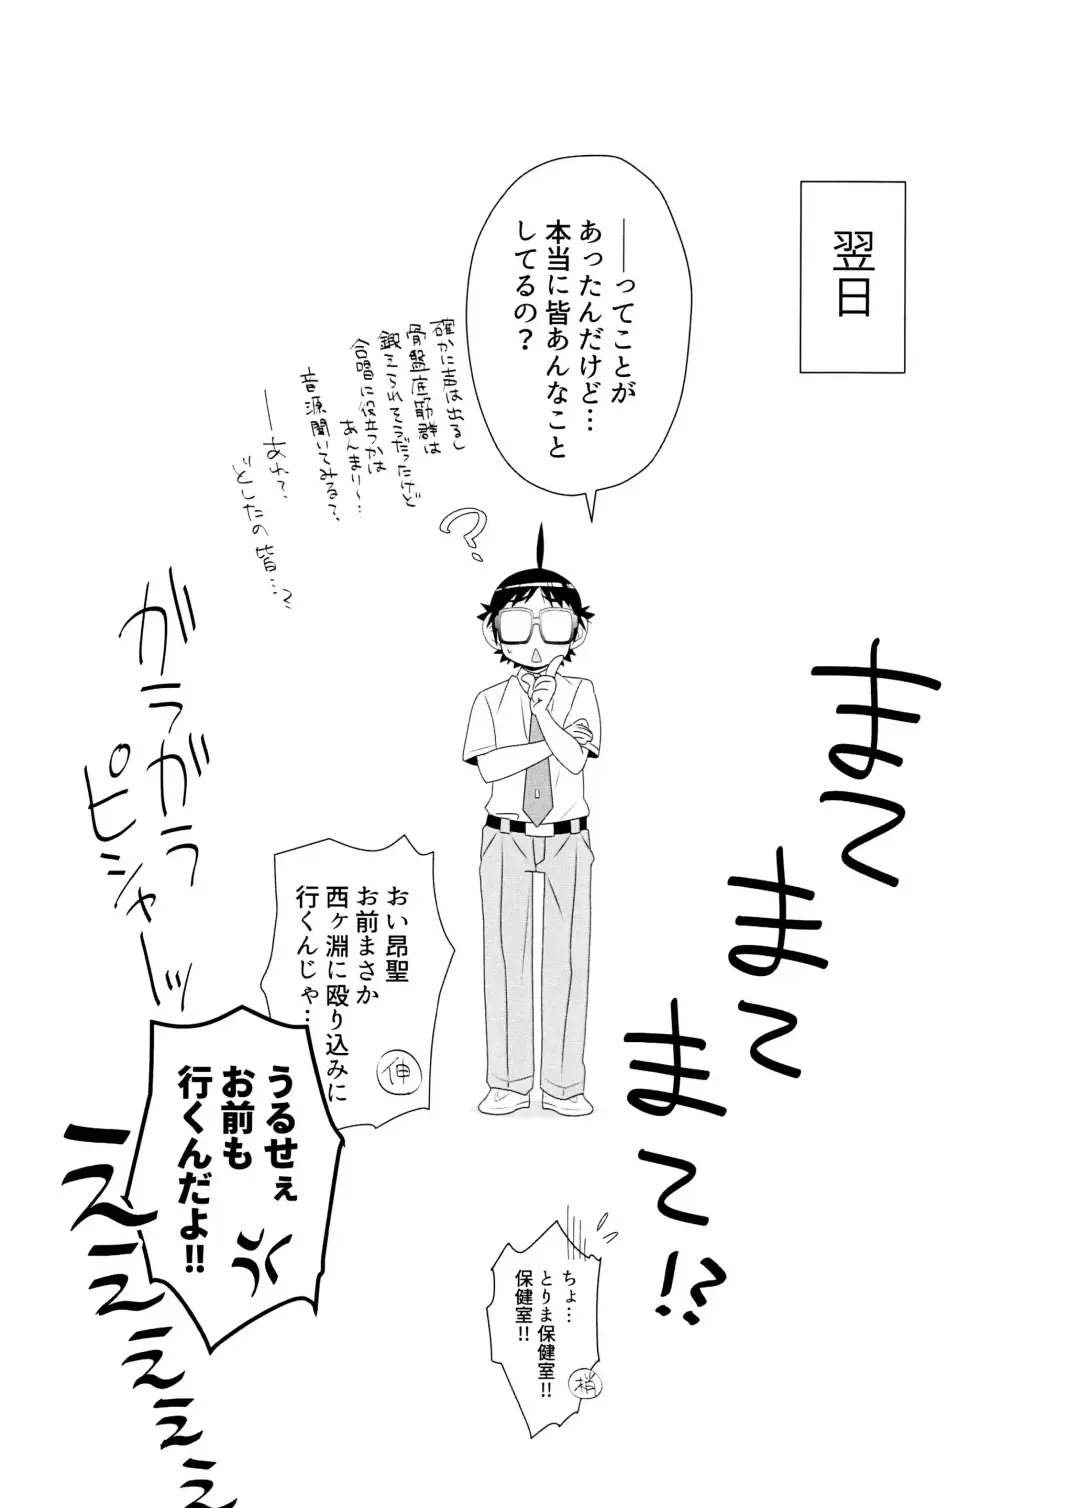 翌日
――ってことが
あったんだけど…
本当に皆あんなこと
してるの？
確かに声は出るし
骨盤底筋群は
鍛えられそうだったけど
合唱に役立つかは
あんまり〜…
音源聞いてみる？
――あれ？
どしたの皆…？
まてまてまて!?
おい昴聖
お前まさか
西ヶ淵に殴り込みに
行くんじゃ…
伸
ガラガラ
ピシャーッ
うるせぇ
お前も
行くんだよ!!
えええええ
ちょ…
とりま保健室!!
保健室!!
梢